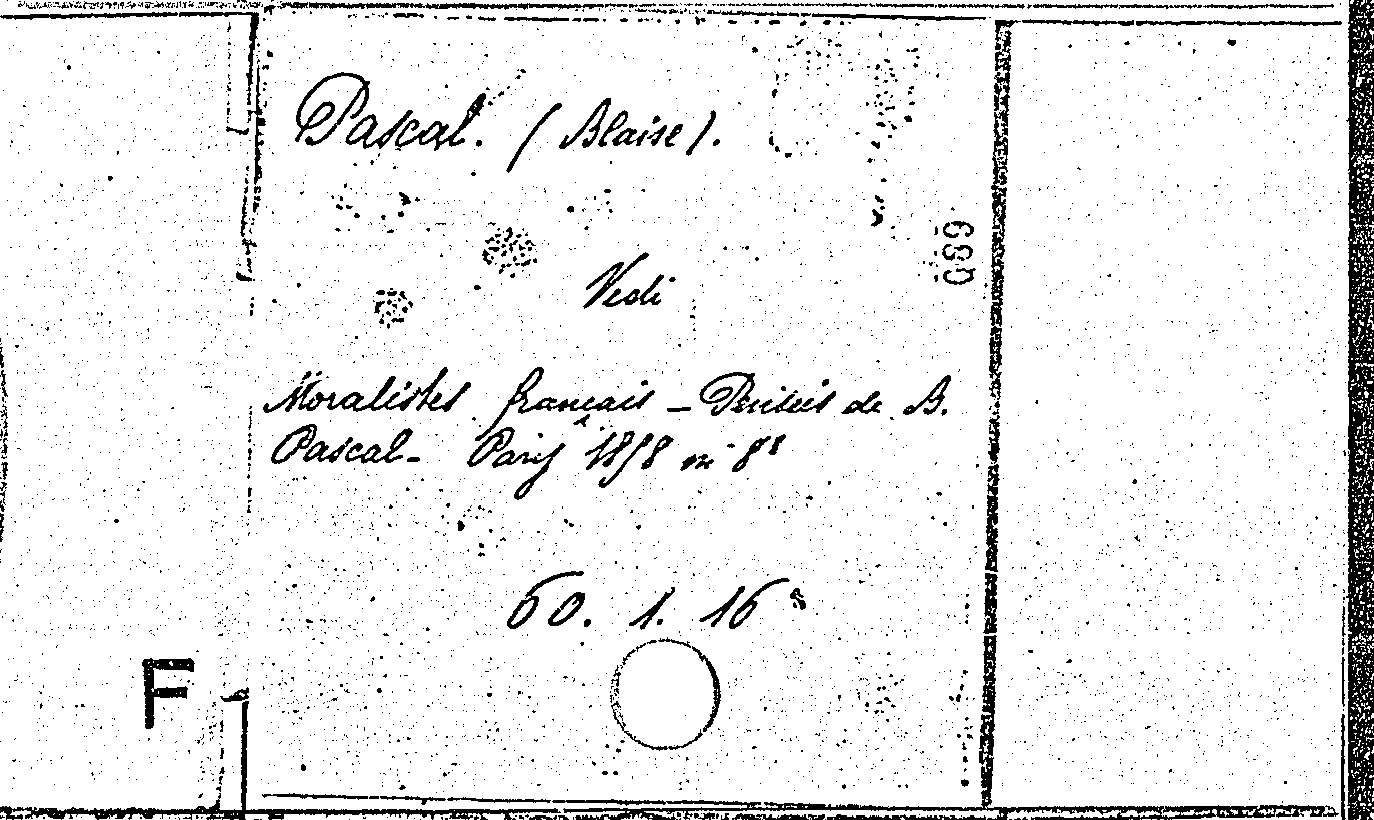 Pascal. (Blaise).
089
Vedi
Moralistes français – Pensées de B.
Pascal – Paris 1858 in-8º
60. 1. 16
F